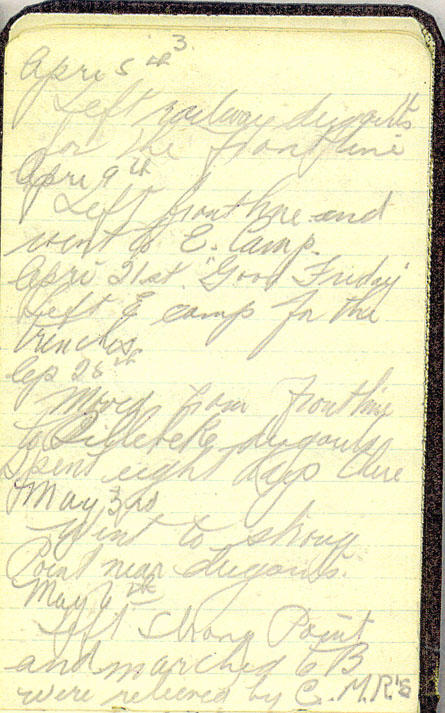 April 5th 3
Left railway dugouts
for the front line
April 9th
Left front line and
went to E. Camp.
April 21st "Good Friday"
Left E camp for the
trenches
Ap 26th
Moved from front line
to dugouts
spent eight days there
May 3rd
Went to strong
Point near dugouts.
May 6th
Left Strong Point
and marched to B
were relieved by C.M.R's